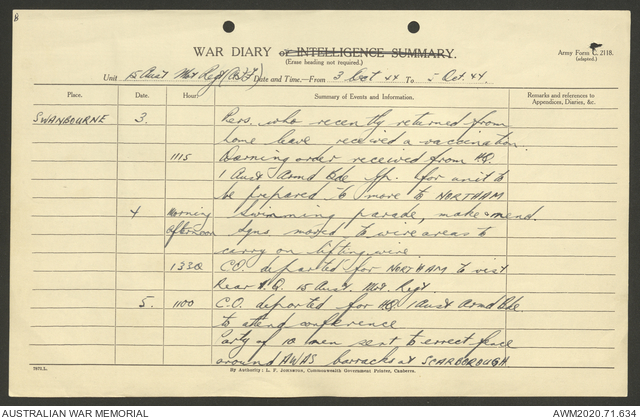 WAR DIARY or INTELLIGENCE SUMMARY.
(Erase heading not required.)
Army Form C. 2118.
(adapted.)
Unit 15 Aust Mot Regt (AIF) Date and Time.—From 3 Oct 44 To 5 Oct. 44.
Place. Date. Hour Summary of Events and Information. Remarks and references to Appendices, Diaries, &c.
SWANBOURNE 3. Pers. who recently returned from
home leave received a vaccination.
1115 Warning order received from HQ.
1 Aust Armd Bde Gp. for unit to
be prepared to move to NORTHAM
4 Morning Swimming parade, make & mend.
Afternoon Sqns moved to wire areas to
carry on lifting wire.
1330 C.O. departed for NORTHAM to visit
Rear H.Q. 15 Aust. Mot. Regt.
5. 1100 C.O. departed for HQ 1 Aust Armd Bde
to attend conference
Party of 10 men sent to erect fence
around AWAS barracks at SCARBOROUGH
7671L.
By Authority: L. F. Johnston, Commonwealth Government Printer, Canberra.
AUSTRALIAN WAR MEMORIAL
AWM2020.71.634